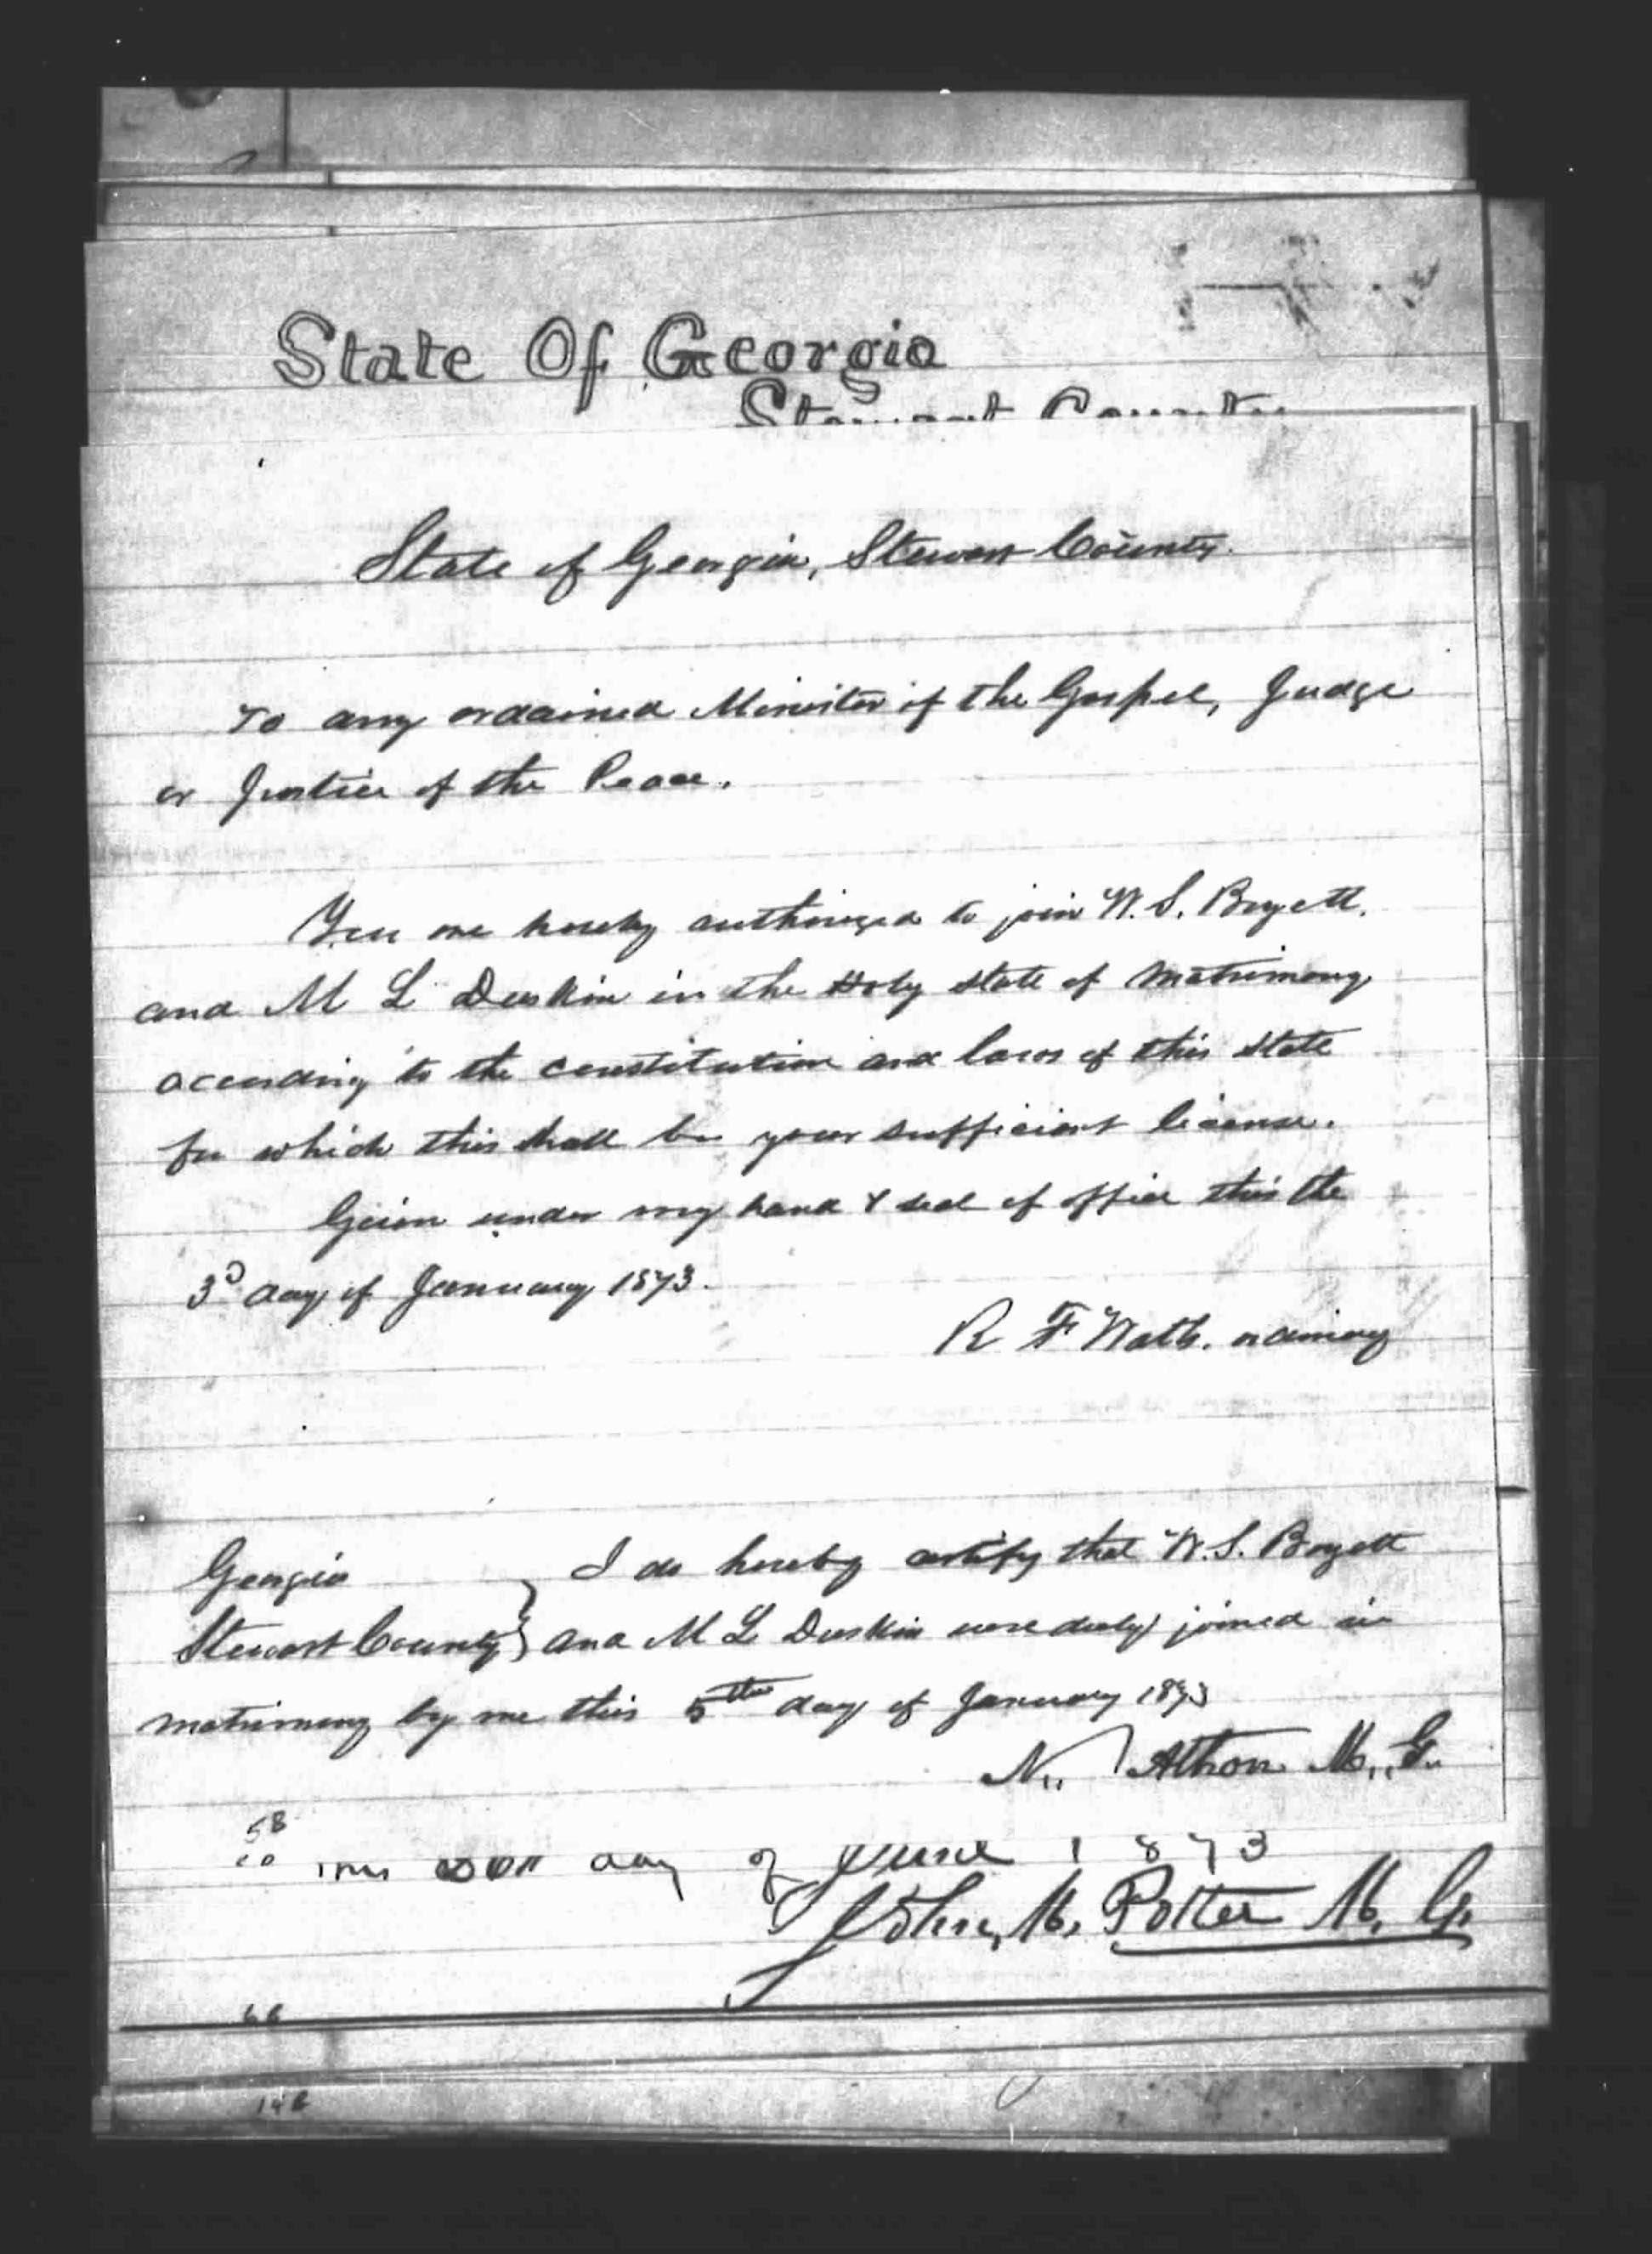 State Of Georgia
Stewart County
State of Georgia, Stewart County.
To any ordained Minister of the Gospel, Judge
or Justice of the Peace.
You are hereby authorized to join W. S. Boyett.
and M L Duskin in the Holy state of Matrimony
according to the constitution and laws of this state
for which this shall be your sufficient license.
Given under my hand & seal of office this the
3d day of January 1873.
R F Watts. ordinary
Georgia } I do hereby certify that W. S. Boyett
Stewart County } and M L Duskin were duly joined in
matrimony by me this 5th day of January 1873
N.. Athon M.. G.
58
day of June 1873
John, M. Potter M. G.